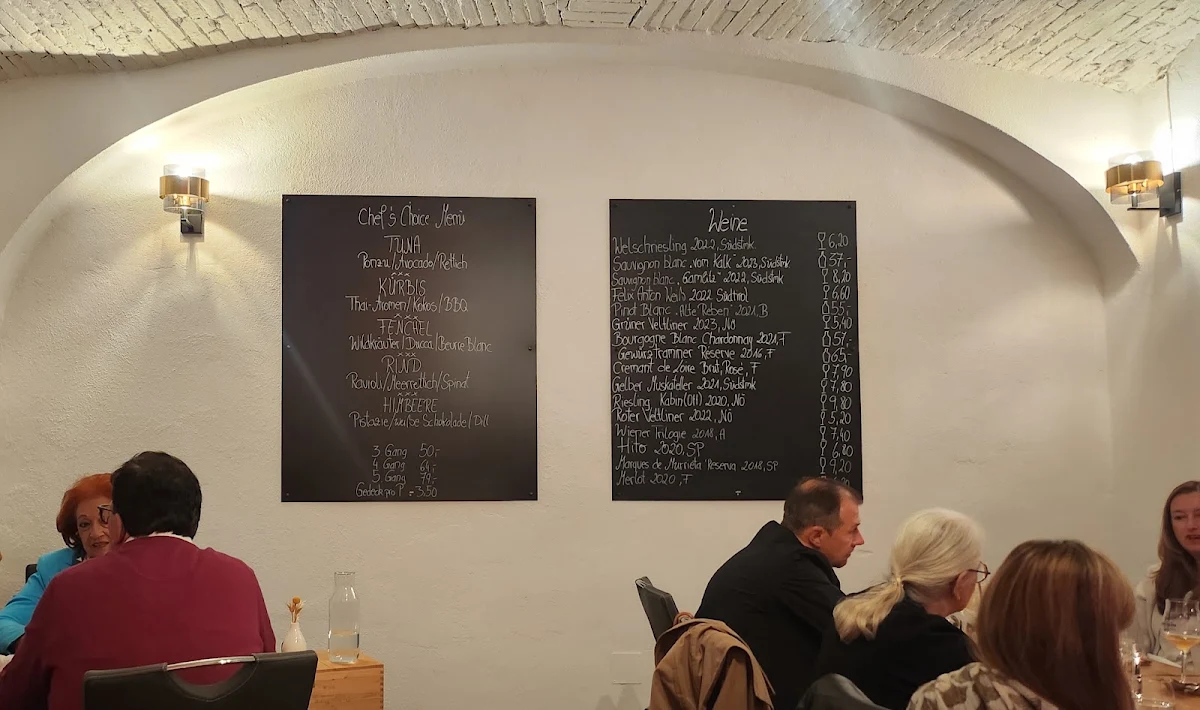 Chef's Choice Menü
TUNA
Ponzu/Avocado/Rettich
xxx
KÜRBIS
Thai-Aromen/Kokos/BBQ
xxx
FENCHEL
Wildkräuter/Ducca/Beurre Blanc
xxx
RIND
Ravioli/Meerrettich/Spinat
xxx
HIMBEERE
Pistazie/weiße Schokolade/Dill
3 Gang 50,-
4 Gang 64,-
5 Gang 79,-
Gedeck pro P = 3,50
Weine
Welschriesling 2022, Südstmk 6,20
Sauvignon blanc "vom Kalk" 2023, Südstmk 37,-
Sauvignon blanc 2022, Südstmk 8,20
Felix Anton Weiß 2022 Südtirol 6,60
Pinot Blanc "Alte Reben" 2021, B 55,-
Grüner Veltliner 2023, NÖ 5,40
Bourgogne Blanc Chardonnay 2021, F 57,-
Gewürztraminer Reserve 2016, F 65,-
Cremant de Loire Brut/Rosé, F 7,90
Gelber Muskateller 2021, Südstmk 7,80
Riesling Kabin(Ott) 2020, NÖ 9,80
Roter Veltliner 2022, NÖ 5,20
Wiener Trilogie 2018, A 7,40
Hito 2020, SP 6,80
Marques de Murrieta Reserva 2018, SP 9,20
Merlot 2020, F